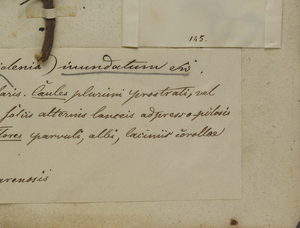 145.
olenia) inundatum
laris. Caules plurimi prostrati, vel
foliis alternis lanceis adpresso-pilosis
flores parvuli, albi, laciniis corollae
arenosis